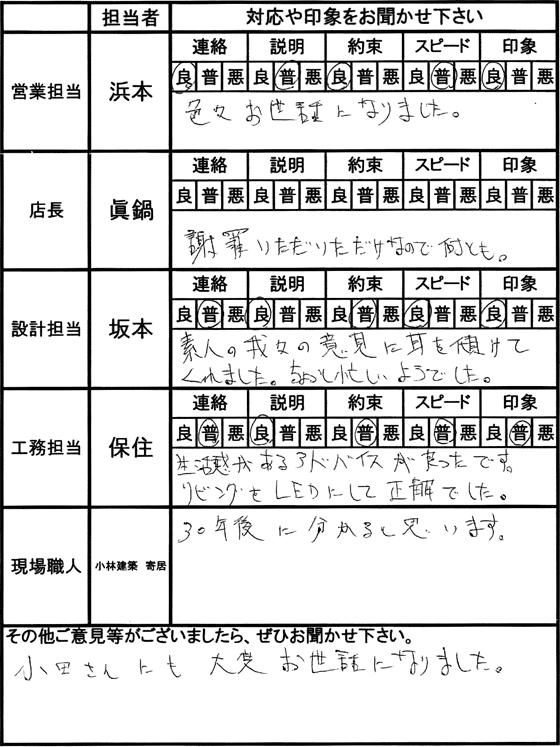 担当者 対応や印象をお聞かせ下さい
営業担当 浜本
連絡 説明 約束 スピード 印象
良 普 悪 良 普 悪 良 普 悪 良 普 悪 良 普 悪
色々お世話になりました。
店長 眞鍋
連絡 説明 約束 スピード 印象
良 普 悪 良 普 悪 良 普 悪 良 普 悪 良 普 悪
謝罪いただいただけなので何とも。
設計担当 坂本
連絡 説明 約束 スピード 印象
良 普 悪 良 普 悪 良 普 悪 良 普 悪 良 普 悪
素人の我々の意見に耳を傾けて
くれました。ちょっと忙しいようでした。
工務担当 保住
連絡 説明 約束 スピード 印象
良 普 悪 良 普 悪 良 普 悪 良 普 悪 良 普 悪
生活感があるアドバイスが良ったです。
リビングをLEDにして正解でした。
現場職人 小林建築 寄居
30年後に分かると思います。
その他ご意見等がございましたら、ぜひお聞かせ下さい。
小田さんにも大変お世話になりました。